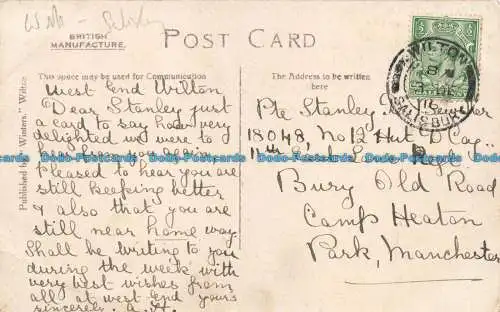 Wilts - Salisbury
BRITISH
MANUFACTURE.
POST CARD
This space may be used for Communication
The Address to be written
here
Published by "Winters," Wilton
WILTON
SALISBURY
16
West End Wilton
Dear Stanley just
a card to say how very
delighted we were to
hear from you again
pleased to hear you are
still keeping better
& also that you are
still near home way
Shall be writing to you
during the week with
very best wishes from
all at west end yours
sincerely. A.H.
Pte Stanley
18048, No 12 Hut D Coy.
11th
Bury Old Road
Camp Heaton
Park, Manchester
Postcards Postcards Postcards Postcards Postcards Postcards Postcards